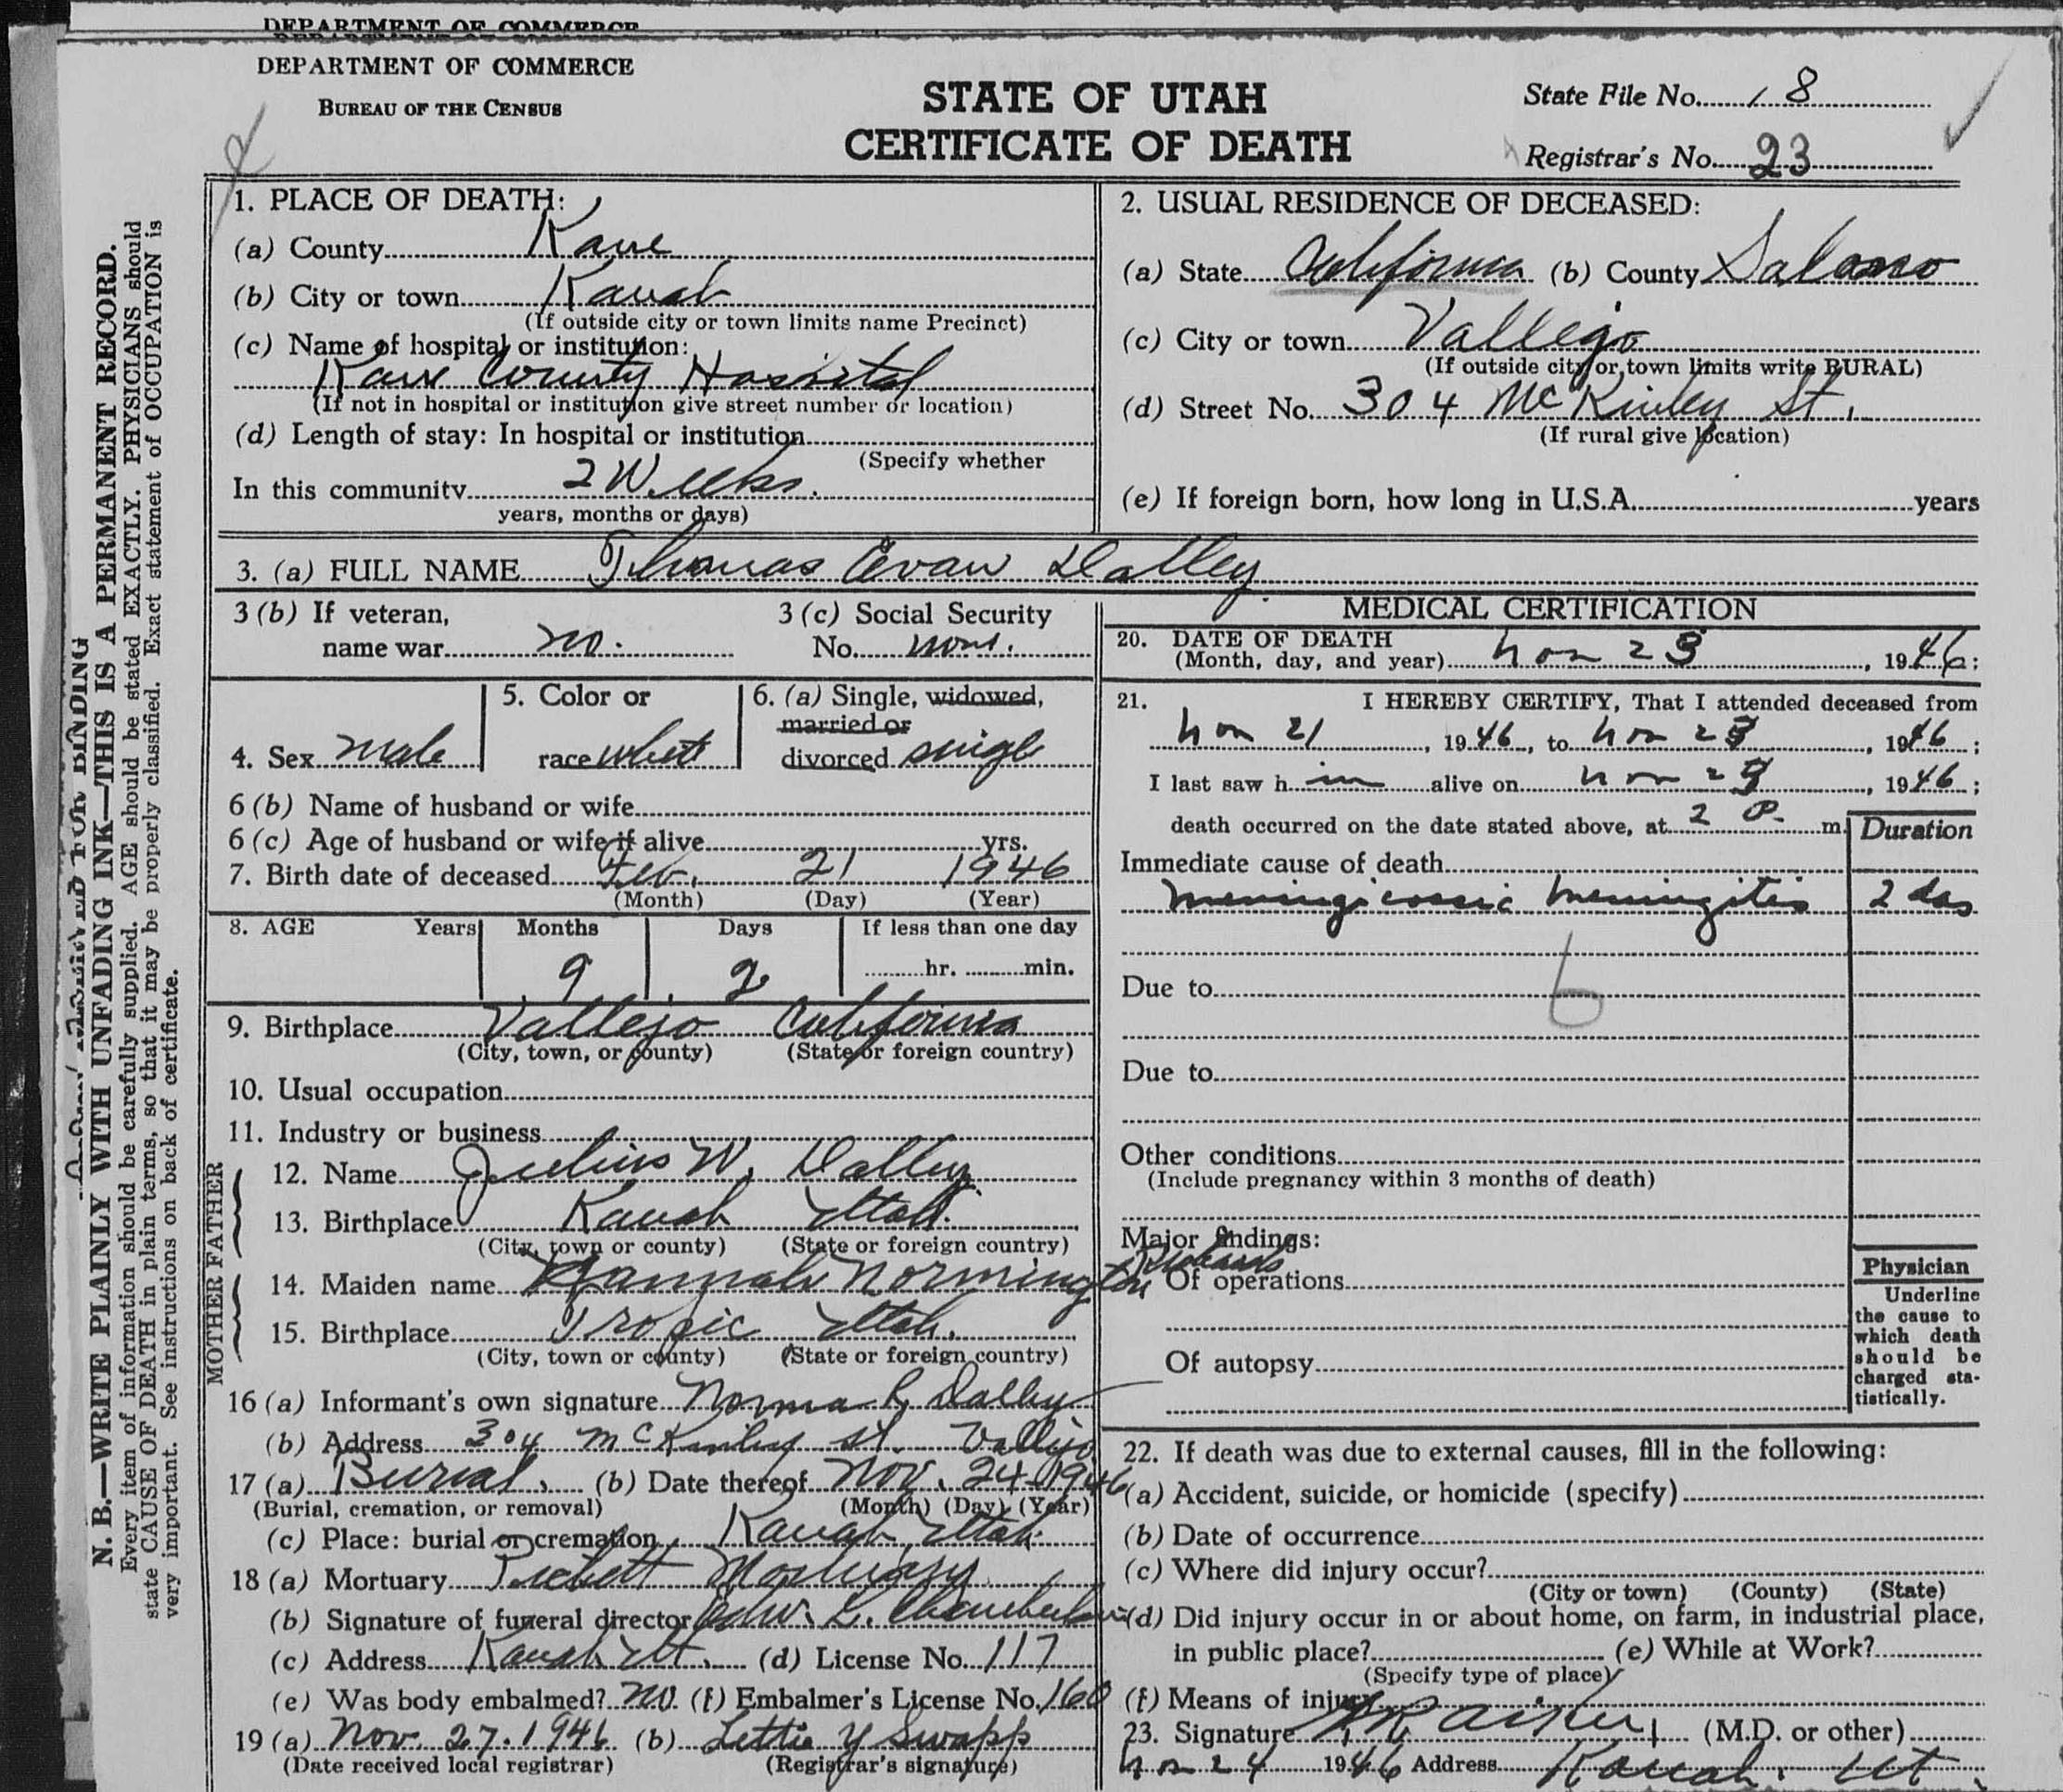 DEPARTMENT OF COMMERCE
DEPARTMENT OF COMMERCE
BUREAU OF THE CENSUS
STATE OF UTAH
CERTIFICATE OF DEATH
State File No. 18
Registrar's No. 23
N. B.—WRITE PLAINLY WITH UNFADING INK—THIS IS A PERMANENT RECORD.
Every item of information should be carefully supplied. AGE should be stated EXACTLY. PHYSICIANS should
state CAUSE OF DEATH in plain terms, so that it may be properly classified. Exact statement of OCCUPATION is
very important. See instructions on back of certificate.
1. PLACE OF DEATH:
(a) County Kane
(b) City or town Kanab
(If outside city or town limits name Precinct)
(c) Name of hospital or institution:
Kane County Hospital
(If not in hospital or institution give street number or location)
(d) Length of stay: In hospital or institution
(Specify whether
In this community 2 Weeks.
years, months or days)
2. USUAL RESIDENCE OF DECEASED:
(a) State California (b) County Salano
(c) City or town Vallejo
(If outside city or town limits write RURAL)
(d) Street No. 304 McKinley St.
(If rural give location)
(e) If foreign born, how long in U.S.A. years
3. (a) FULL NAME Thomas Evan Dalley
3 (b) If veteran,
name war no.
3 (c) Social Security
No. none.
4. Sex male
5. Color or
race white
6. (a) Single, widowed,
married or
divorced single
6 (b) Name of husband or wife
6 (c) Age of husband or wife if alive yrs.
7. Birth date of deceased Feb. 21 1946
(Month) (Day) (Year)
8. AGE Years Months Days If less than one day
9 2 hr. min.
9. Birthplace Vallejo California
(City, town, or county) (State or foreign country)
10. Usual occupation
11. Industry or business
FATHER
12. Name Julius W. Dalley
13. Birthplace Kanab Utah.
(City, town or county) (State or foreign country)
MOTHER
14. Maiden name Hannah Normington Richards
15. Birthplace Tropic Utah.
(City, town or county) (State or foreign country)
16 (a) Informant's own signature Norma R. Dalley
(b) Address 304 McKinley St. Vallejo
17 (a) Burial. (b) Date thereof Nov. 24 1946
(Burial, cremation, or removal) (Month) (Day) (Year)
(c) Place: burial or cremation Kanab, Utah.
18 (a) Mortuary Mortuary
(b) Signature of funeral director Edw. L. Chamberlain
(c) Address Kanab, Ut. (d) License No. 117
(e) Was body embalmed? no. (f) Embalmer's License No. 160
19 (a) Nov. 27. 1946 (b) Lettie Y Swapp
(Date received local registrar) (Registrar's signature)
MEDICAL CERTIFICATION
20. DATE OF DEATH
(Month, day, and year) Nov 23, 1946;
21. I HEREBY CERTIFY, That I attended deceased from
Nov 21, 1946, to Nov 23, 1946;
I last saw him alive on Nov 23, 1946;
death occurred on the date stated above, at 2 P. m.
Duration
Immediate cause of death
meningitis 2 das
Due to
6
Due to
Other conditions
(Include pregnancy within 3 months of death)
Major findings:
Of operations
Of autopsy
Physician
Underline
the cause to
which death
should be
charged sta-
tistically.
22. If death was due to external causes, fill in the following:
(a) Accident, suicide, or homicide (specify)
(b) Date of occurrence
(c) Where did injury occur?
(City or town) (County) (State)
(d) Did injury occur in or about home, on farm, in industrial place,
in public place? (e) While at Work?
(Specify type of place)
(f) Means of injury
23. Signature (M.D. or other)
Nov 24 1946 Address Kanab. Ut